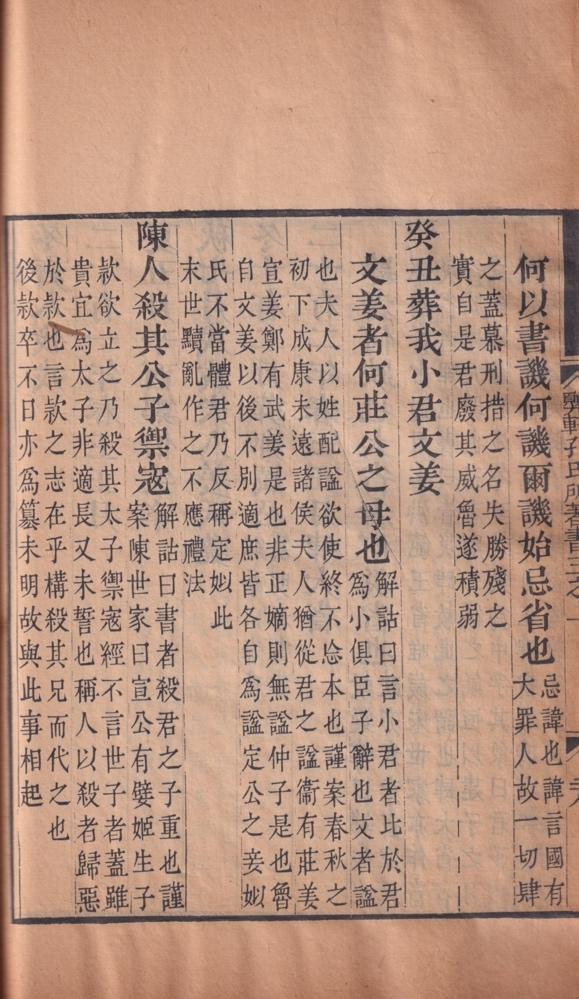 軒孔氏所著書三之
何以書譏何譏爾譏始忌省也
忌諱也諱言國有
大罪人故一切肆
之蓋慕刑措之名失勝殘之
實自是君廢其威魯遂積弱
癸丑葬我小君文姜
文姜者何莊公之母也
解詁曰言小君者比於君
爲小俱臣子辭也文者謚
也夫人以姓配謚欲使終不忘本也謹案春秋之
初下成康未遠諸侯夫人猶從君之謚衞有莊姜
宣姜鄭有武姜是也非正嫡則無謚仲子是也魯
自文姜以後不別適庶皆各自爲謚定公之妾姒
氏不當體君乃反稱定姒此
末世黷亂作之不應禮法
陳人殺其公子禦寇
解詁曰書者殺君之子重也謹
案陳世家曰宣公有嬖姬生子
款欲立之乃殺其太子禦寇經不言世子者蓋雖
貴宜爲太子非適長又未誓也稱人以殺者歸惡
於款也言款之志在乎構殺其兄而代之也
後款卒不日亦爲篡未明故與此事相起